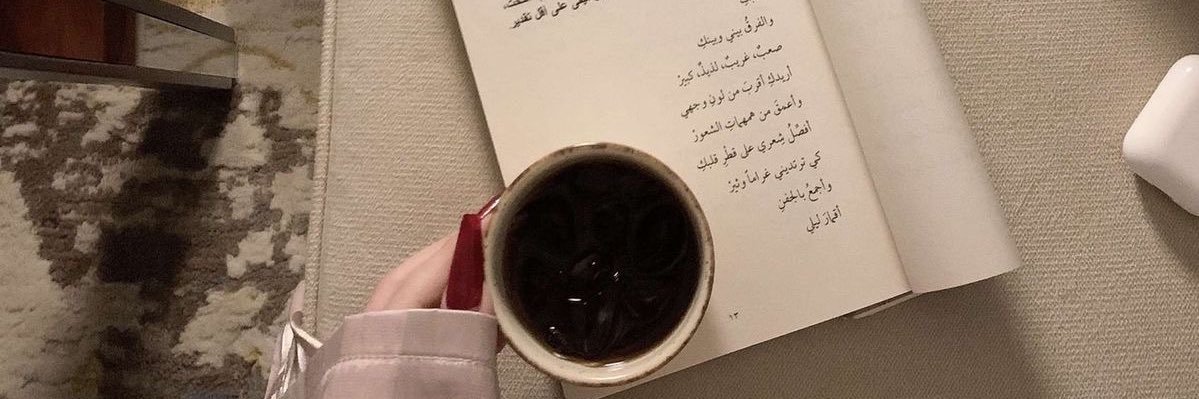 على أقل تقدير
والفرقُ بيني وبينكِ
صعبٌ، غريبٌ، لذيذٌ، كبيرْ
أريدكِ أقربَ من لونِ وجهي
وأعمقَ من همهماتِ الشعورْ
أفصّلُ شِعري على قطرِ قلبكِ
كي ترتديني غراماً وثيرْ
وأجمعُ بالجفنِ
أقمارَ ليلي
١٣